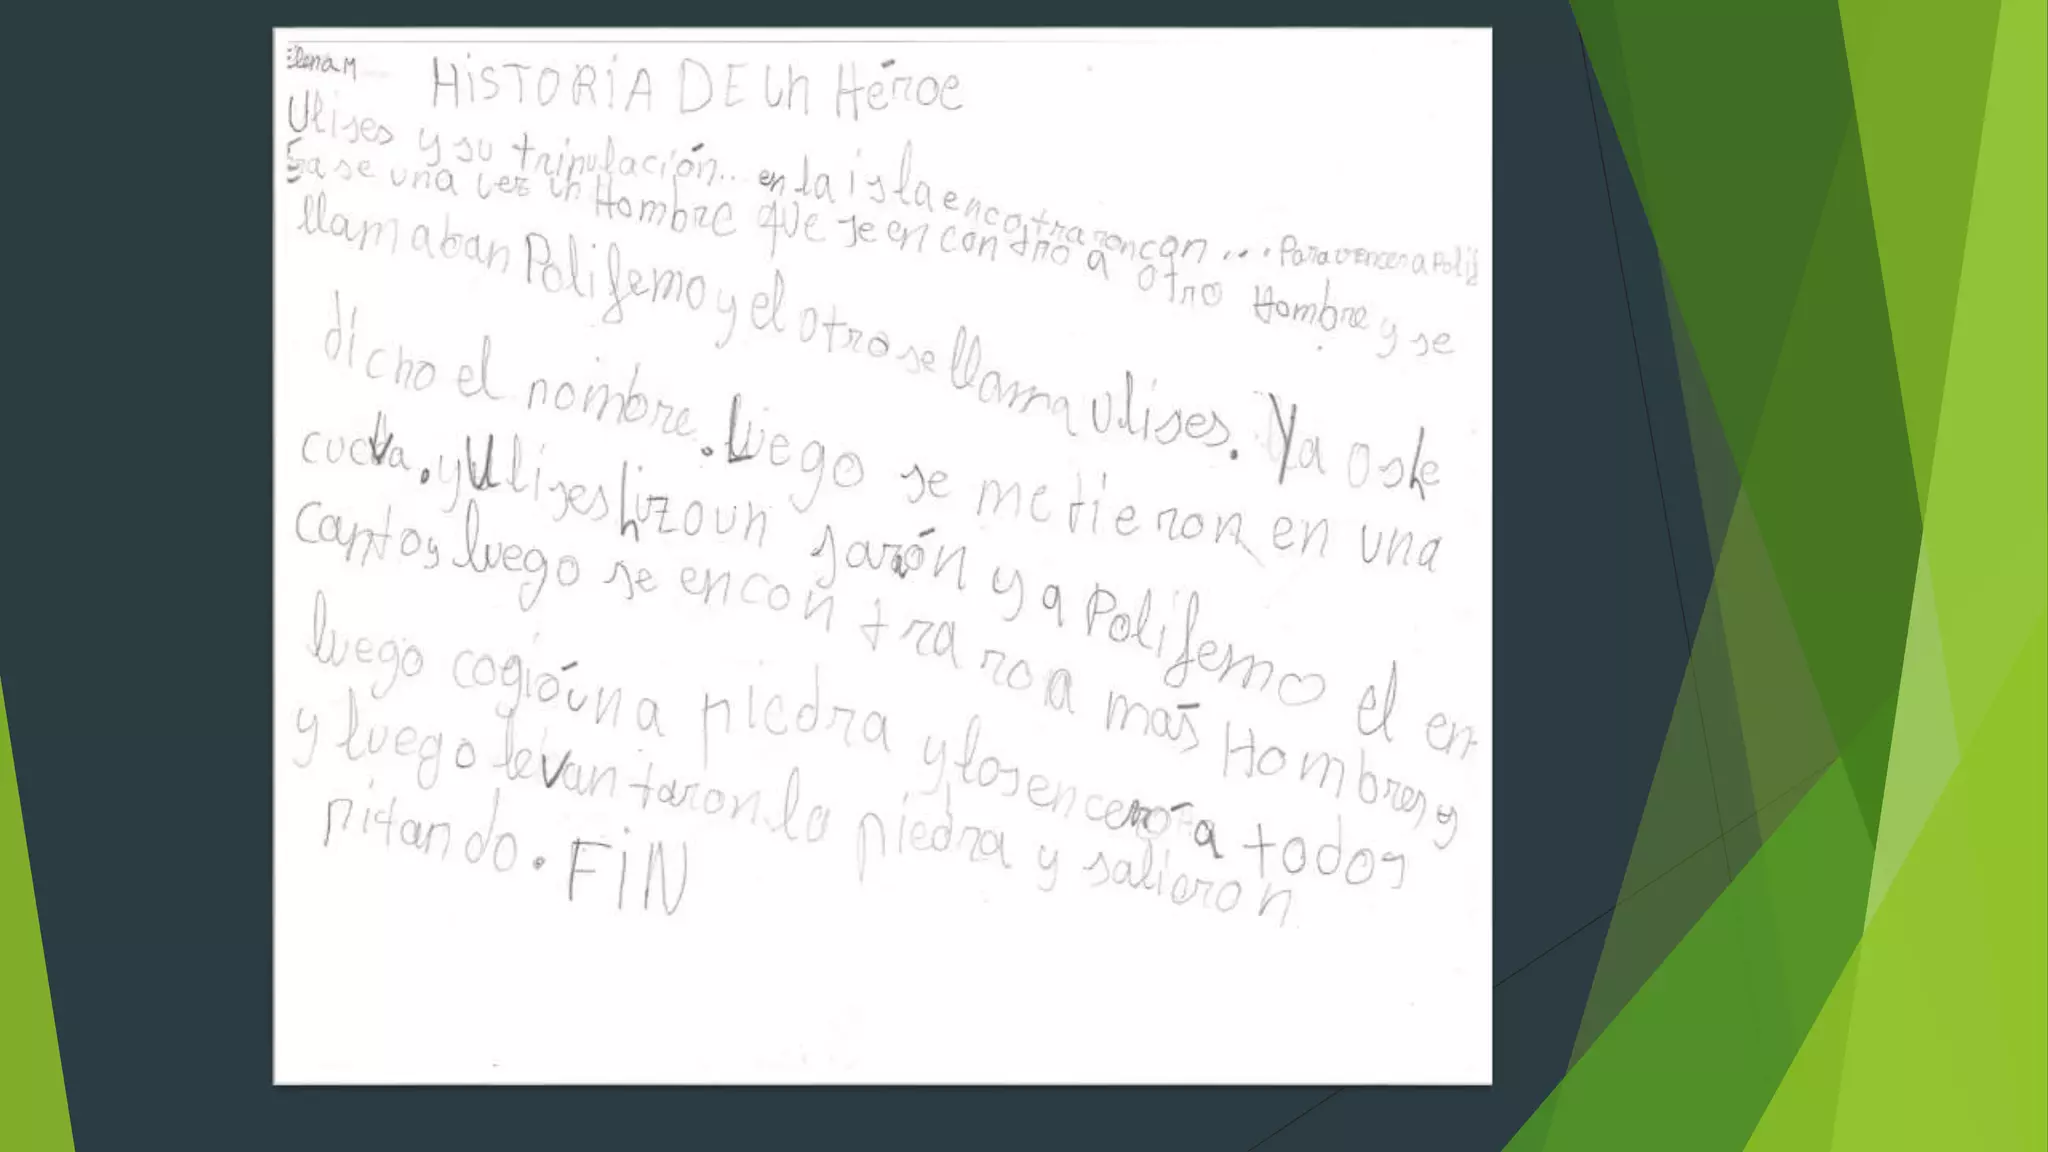 Elena M
HiSTORiA DE Un Héroe
Ulises y su tripulación... en la isla encotraron con .... Para vencer a Polif
Érase una vez un Hombre que se encontro a otro Hombre y se
llamaban Polifemo y el otro se llama Ulises. Ya os he
dicho el nombre. Luego se metieron en una
cueva. y Ulises hizo un jarón y a Polifemo el en
canto y luego se encontraron a más Hombres y
luego cogió una piedra y los encerró a todos
y luego levantaron la piedra y salieron
pitando. FiN